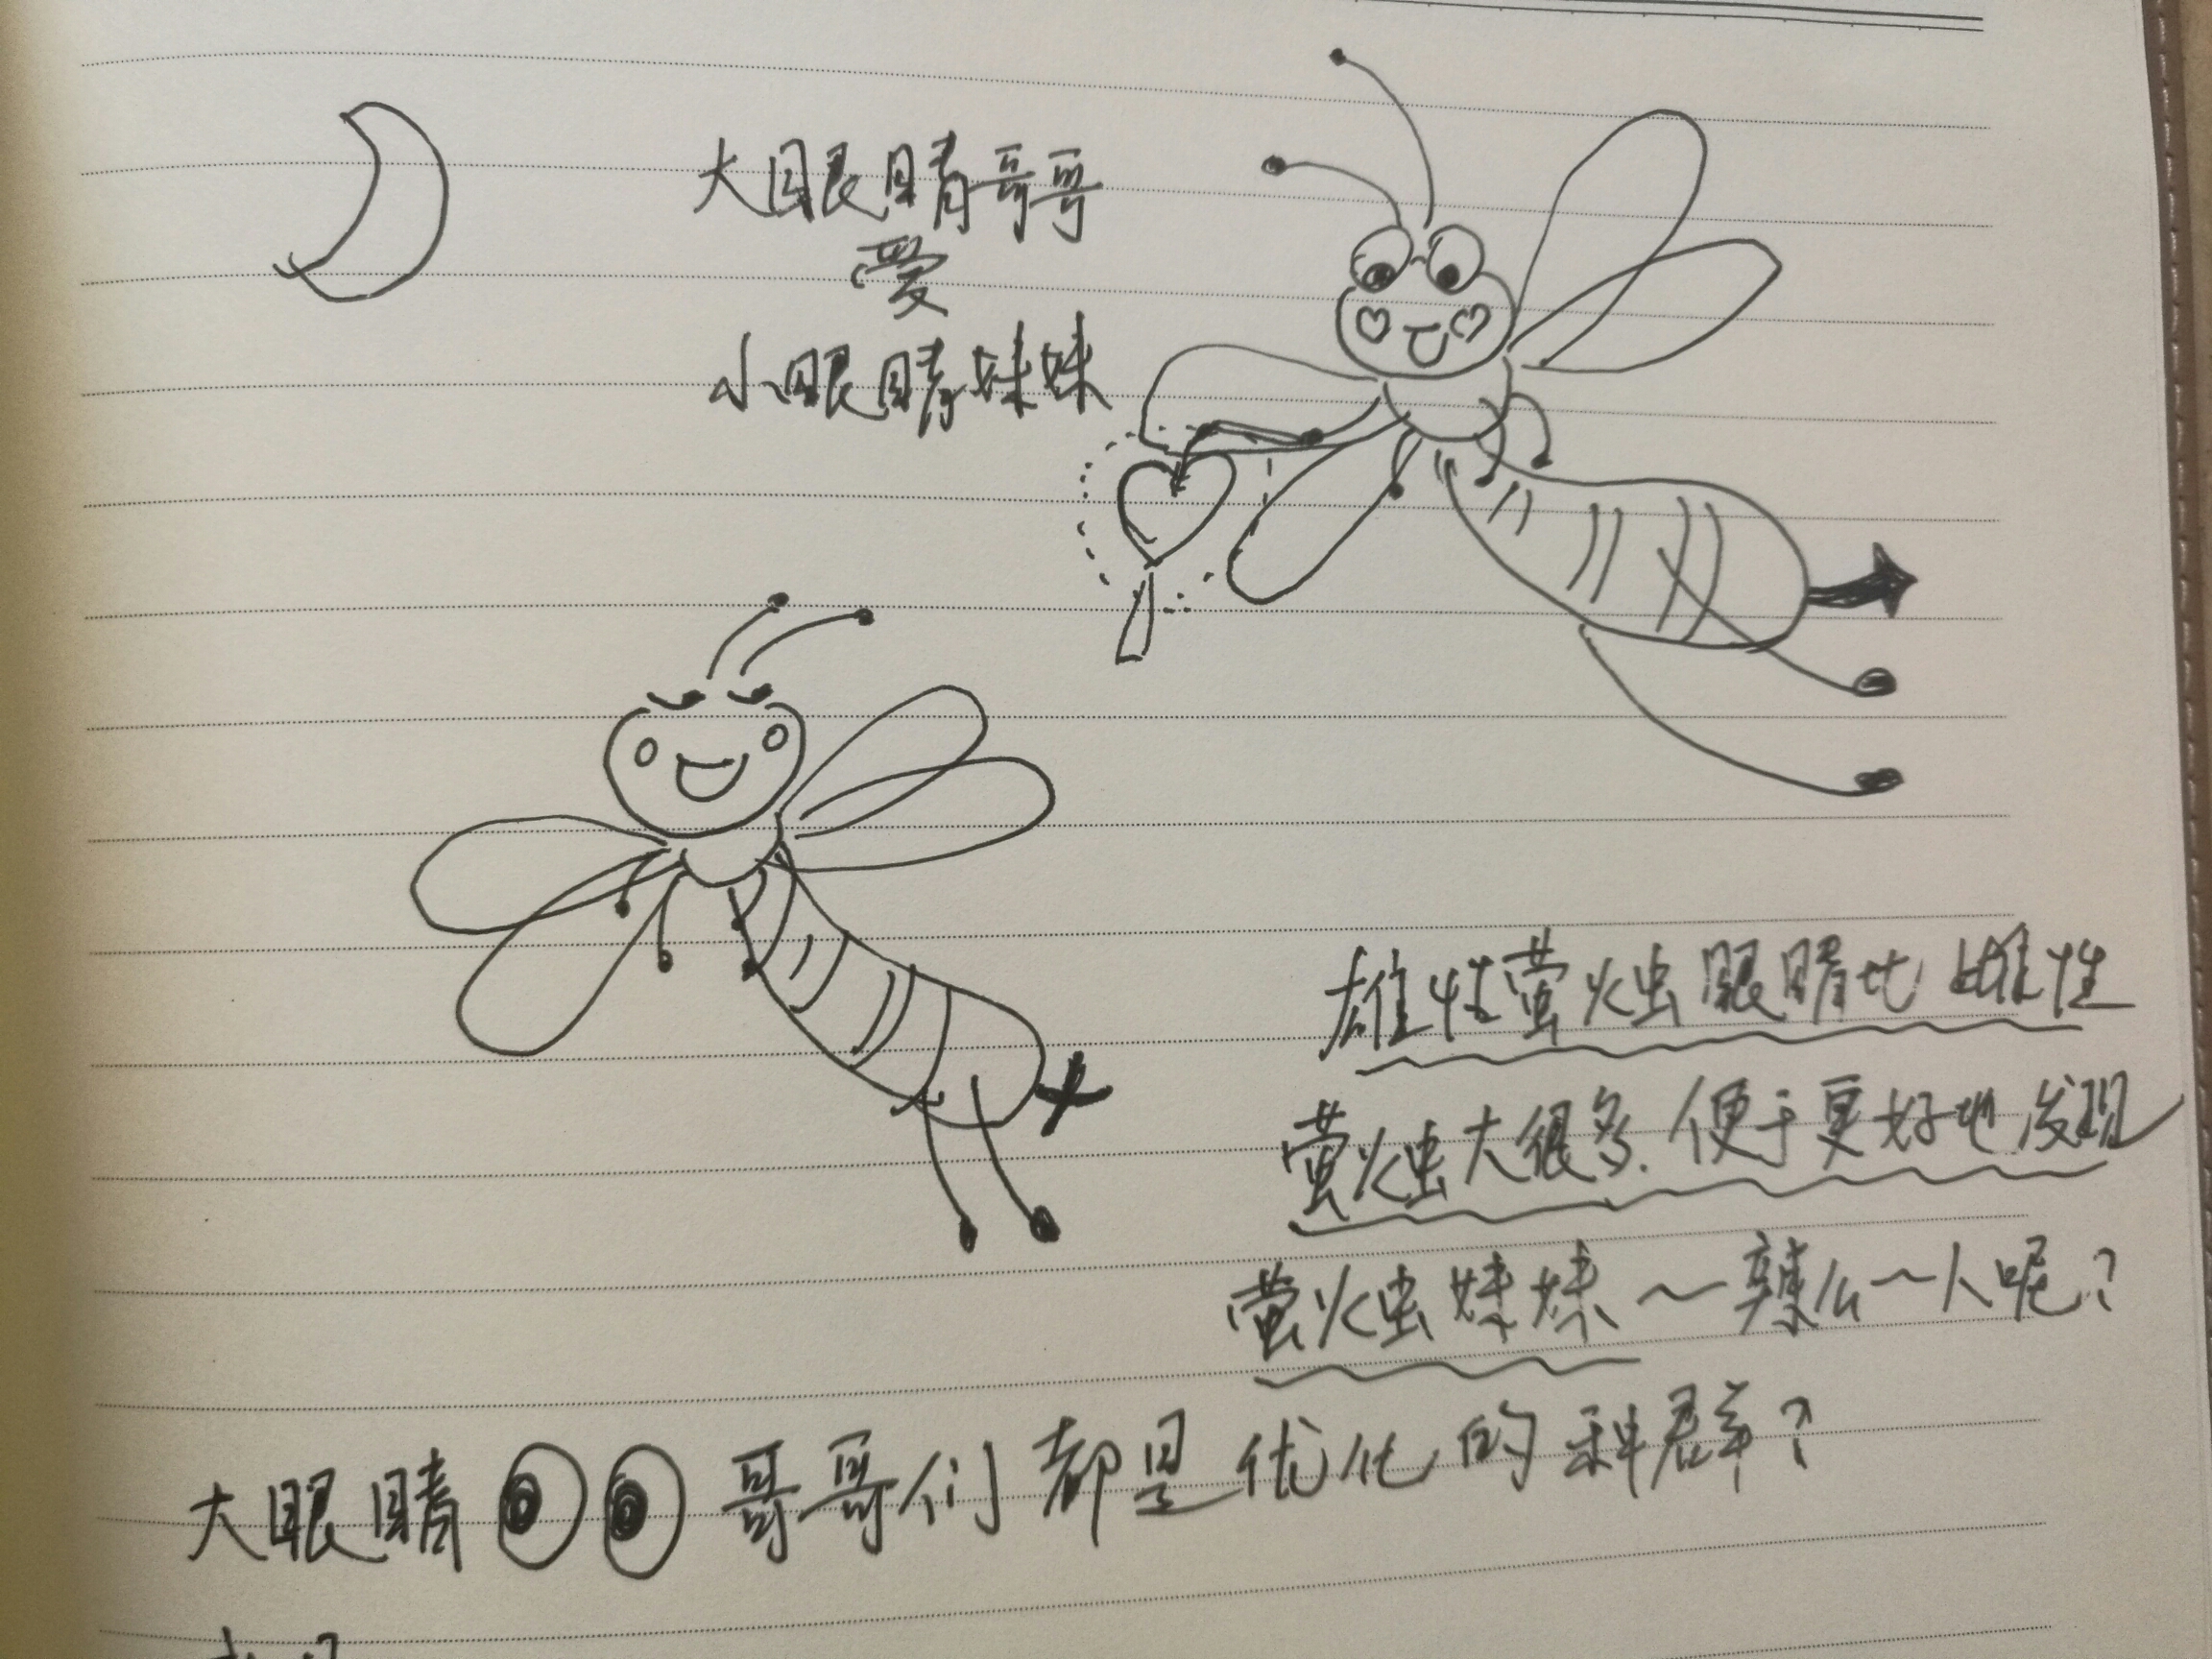 大眼睛哥哥
爱
小眼睛妹妹
雄性萤火虫眼睛比雌性
萤火虫大很多.便于更好地发现
萤火虫妹妹~辣么~人呢?
大眼睛哥哥们都是优化的种群?